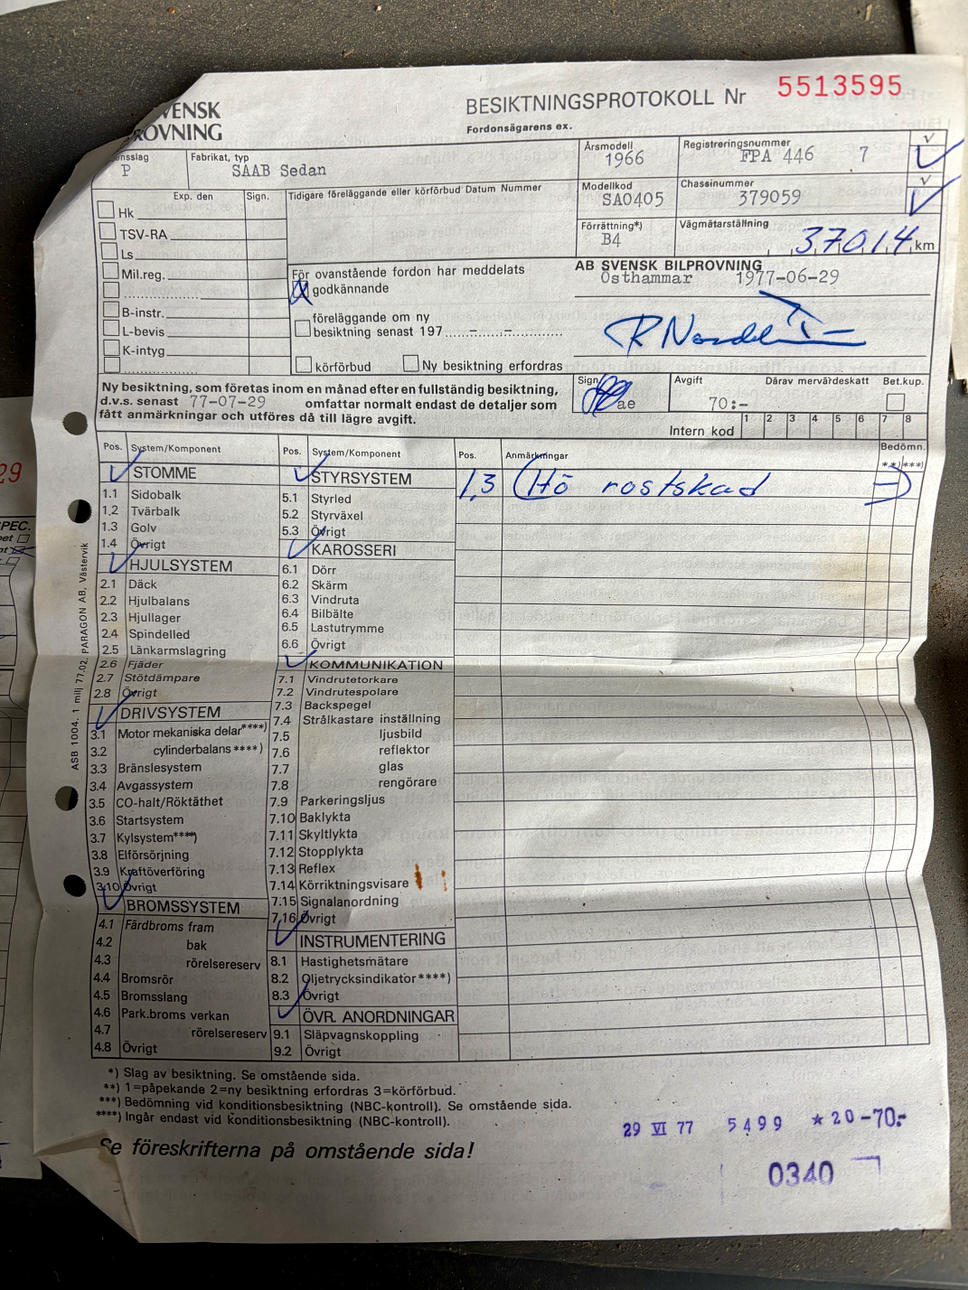 VENSK
ROVNING
BESIKTNINGSPROTOKOLL Nr 5513595
Fordonsägarens ex.
onsslag
P
Fabrikat, typ
SAAB Sedan
Årsmodell
1966
Registreringsnummer
FPA 446 7
Modellkod
SA0405
Chassinummer
379059
Förrättning*)
B4
Vägmätarställning
37014 km
Exp. den Sign.
Hk
TSV-RA
Ls
Mil.reg.
B-instr.
L-bevis
K-intyg
Tidigare föreläggande eller körförbud Datum Nummer
För ovanstående fordon har meddelats
godkännande
föreläggande om ny
besiktning senast 197
körförbud Ny besiktning erfordras
AB SVENSK BILPROVNING
Östhammar 1977-06-29
Ny besiktning, som företas inom en månad efter en fullständig besiktning,
d.v.s. senast 77-07-29 omfattar normalt endast de detaljer som
fått anmärkningar och utföres då till lägre avgift.
Sign
ae
Avgift
70:-
Därav mervärdeskatt
Bet.kup.
Intern kod 1 2 3 4 5 6 7 8
Pos. System/Komponent
STOMME
1.1 Sidobalk
1.2 Tvärbalk
1.3 Golv
1.4 Övrigt
HJULSYSTEM
2.1 Däck
2.2 Hjulbalans
2.3 Hjullager
2.4 Spindelled
2.5 Länkarmslagring
2.6 Fjäder
2.7 Stötdämpare
2.8 Övrigt
DRIVSYSTEM
3.1 Motor mekaniska delar****)
3.2 cylinderbalans****)
3.3 Bränslesystem
3.4 Avgassystem
3.5 CO-halt/Röktäthet
3.6 Startsystem
3.7 Kylsystem****)
3.8 Elförsörjning
3.9 Kraftöverföring
3.10 Övrigt
BROMSSYSTEM
4.1 Färdbroms fram
4.2 bak
4.3 rörelsereserv
4.4 Bromsrör
4.5 Bromsslang
4.6 Park.broms verkan
4.7 rörelsereserv
4.8 Övrigt
Pos. System/Komponent
STYRSYSTEM
5.1 Styrled
5.2 Styrväxel
5.3 Övrigt
KAROSSERI
6.1 Dörr
6.2 Skärm
6.3 Vindruta
6.4 Bilbälte
6.5 Lastutrymme
6.6 Övrigt
KOMMUNIKATION
7.1 Vindrutetorkare
7.2 Vindrutespolare
7.3 Backspegel
7.4 Strålkastare inställning
7.5 ljusbild
7.6 reflektor
7.7 glas
7.8 rengörare
7.9 Parkeringsljus
7.10 Baklykta
7.11 Skyltlykta
7.12 Stopplykta
7.13 Reflex
7.14 Körriktningsvisare
7.15 Signalanordning
7.16 Övrigt
INSTRUMENTERING
8.1 Hastighetsmätare
8.2 Oljetrycksindikator****)
8.3 Övrigt
ÖVR. ANORDNINGAR
9.1 Släpvagnskoppling
9.2 Övrigt
Pos. Anmärkningar Bedömn.
**) ***)
1,3 (Hö rostskad -)
ASB 1004. 1 milj 77.02. PARAGON AB, Västervik
*) Slag av besiktning. Se omstående sida.
**) 1=påpekande 2=ny besiktning erfordras 3=körförbud.
***) Bedömning vid konditionsbesiktning (NBC-kontroll). Se omstående sida.
****) Ingår endast vid konditionsbesiktning (NBC-kontroll).
Se föreskrifterna på omstående sida!
29 VI 77 5499 *20-70.-
0340
29
PEC.